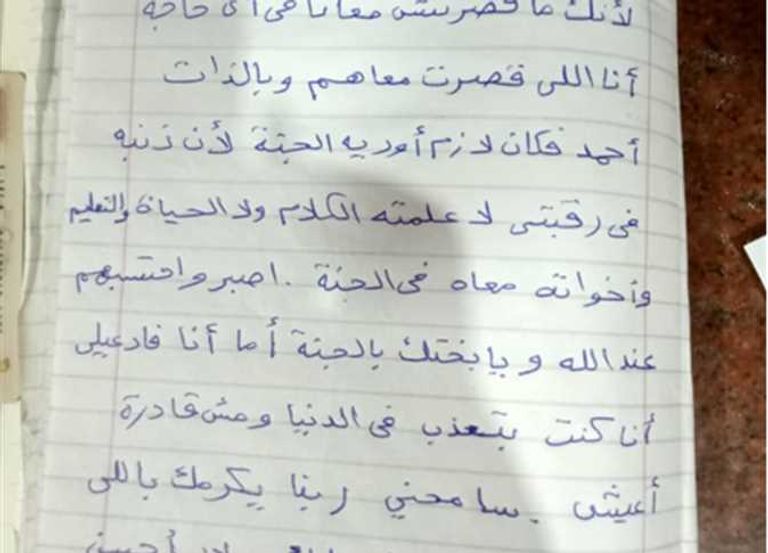 لأنك ما قصرتش معانا فى أى حاجة
أنا اللى قصرت معاهم وبالذات
أحمد فكان لازم أوديه الجنة لأن ذنبه
فى رقبتى لا علمته الكلام ولا الحياة والتعليم
وأخواته معاه فى الجنة . اصبر واحتسبهم
عند الله ويا بختك بالجنة أما أنا فادعيلى
أنا كنت بتعذب فى الدنيا ومش قادرة
أعيش . سامحني ربنا يكرمك باللى